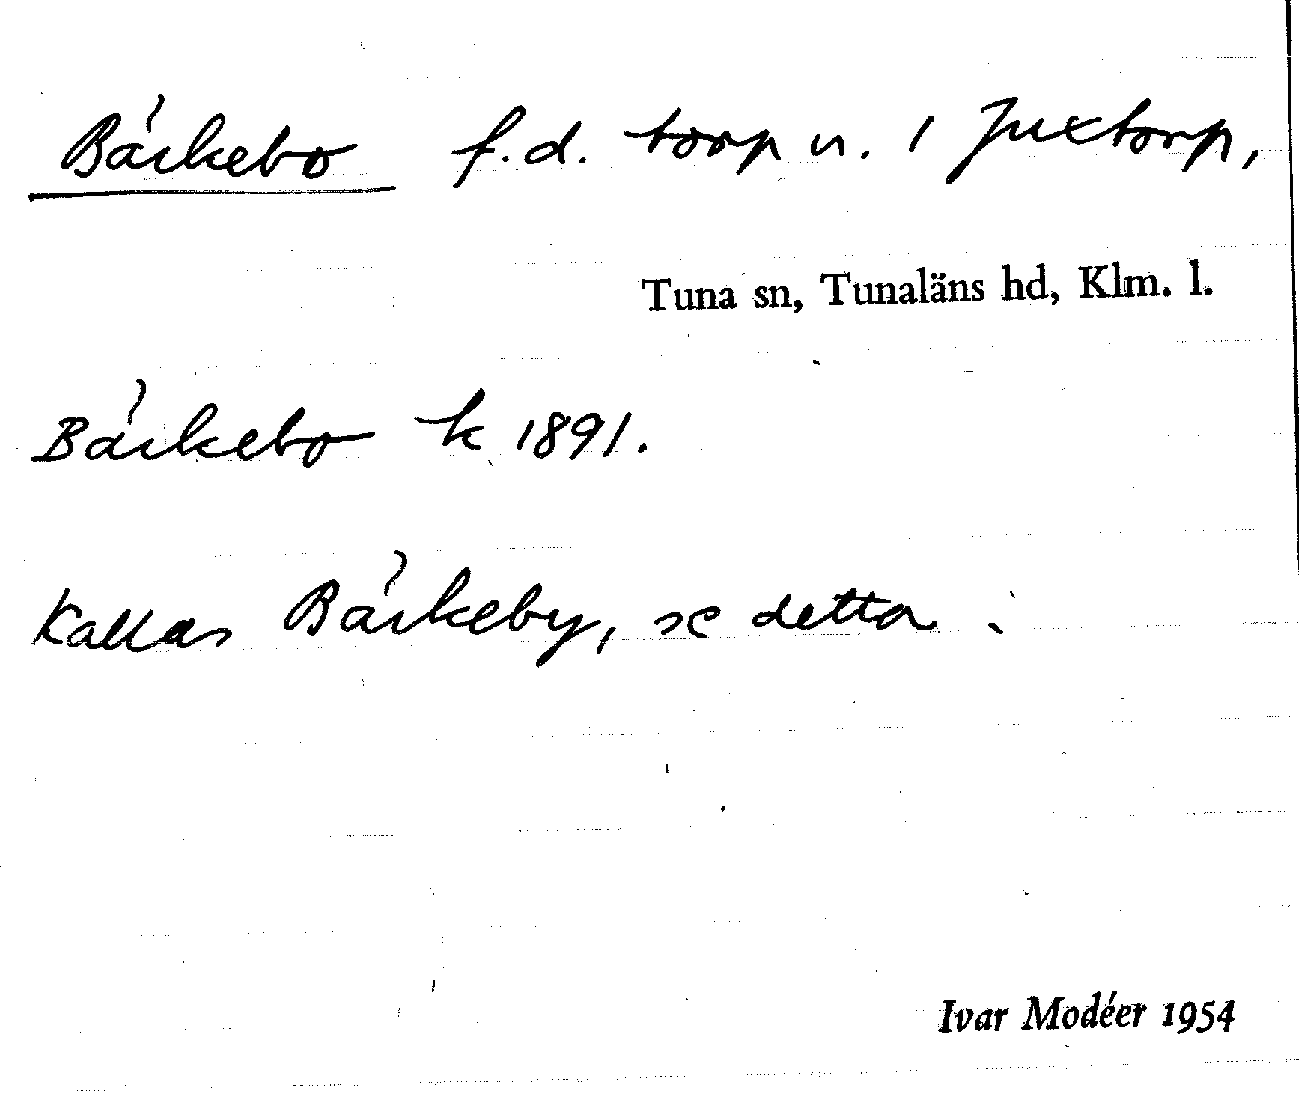 Bärkebo f.d. torp u. 1 Juxtorp,
Tuna sn, Tunaläns hd, Klm. l.
Bärkebo k 1891.
Kallas Bärkeby, se detta.
Ivar Modéer 1954